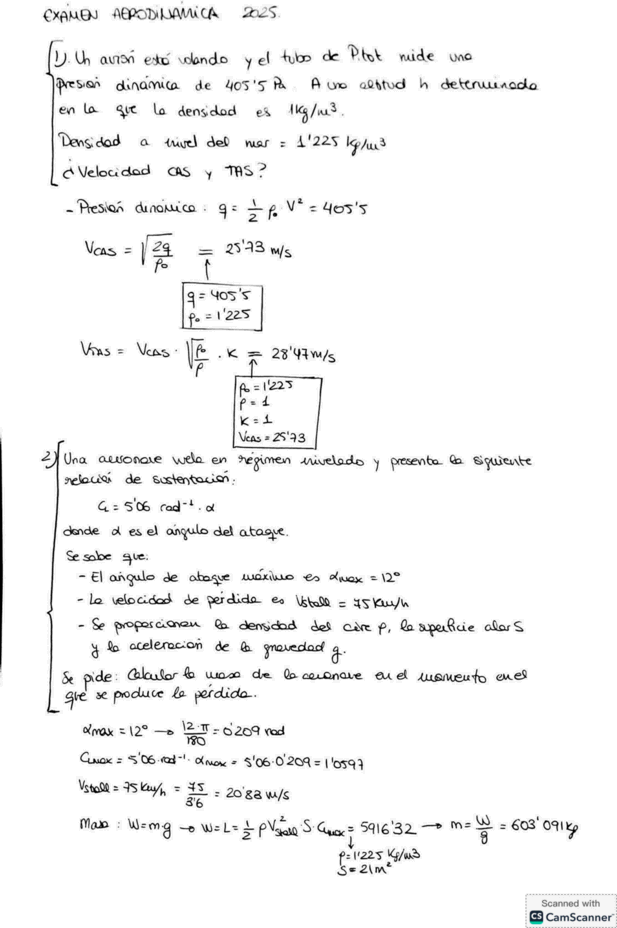 EXAMEN AERODINAMICA 2025.
1). Un avión está volando y el tubo de Pitot mide una
presión dinámica de 405'5 Pa. A una altitud h determinada
en la que la densidad es 1kg/m³.
Densidad a nivel del mar = 1'225 kg/m³
¿Velocidad CAS y TAS?
- Presión dinámica: q = 1/2 ρ₀ V² = 405'5
V_CAS = √(2q/ρ₀) = 25'73 m/s
q = 405'5
ρ₀ = 1'225
V_TAS = V_CAS · √(ρ₀/ρ) · K = 28'47 m/s
ρ₀ = 1'225
ρ = 1
K = 1
V_CAS = 25'73
2) Una aeronave vuela en régimen nivelado y presenta la siguiente
relación de sustentación:
C_L = 5'06 rad⁻¹ · α
donde α es el ángulo del ataque.
Se sabe que:
- El ángulo de ataque máximo es αmax = 12°
- La velocidad de pérdida es Vstall = 75 Km/h
- Se proporcionan la densidad del aire ρ, la superficie alar S
y la aceleracion de la gravedad g.
Se pide: Calcular la masa de la aeronave en el momento en el
que se produce la pérdida.
αmax = 12° → 12·π/180 = 0'209 rad
C_Lmax = 5'06 · rad⁻¹ · αmax = 5'06 · 0'209 = 1'0597
Vstall = 75 Km/h = 75/3'6 = 20'83 m/s
Masa : W = m·g → W = L = 1/2 ρ V²stall · S · C_Lmax = 5916'32 → m = W/g = 603'091 kg
ρ = 1'225 Kg/m3
S = 21m²
Scanned with
CS CamScanner